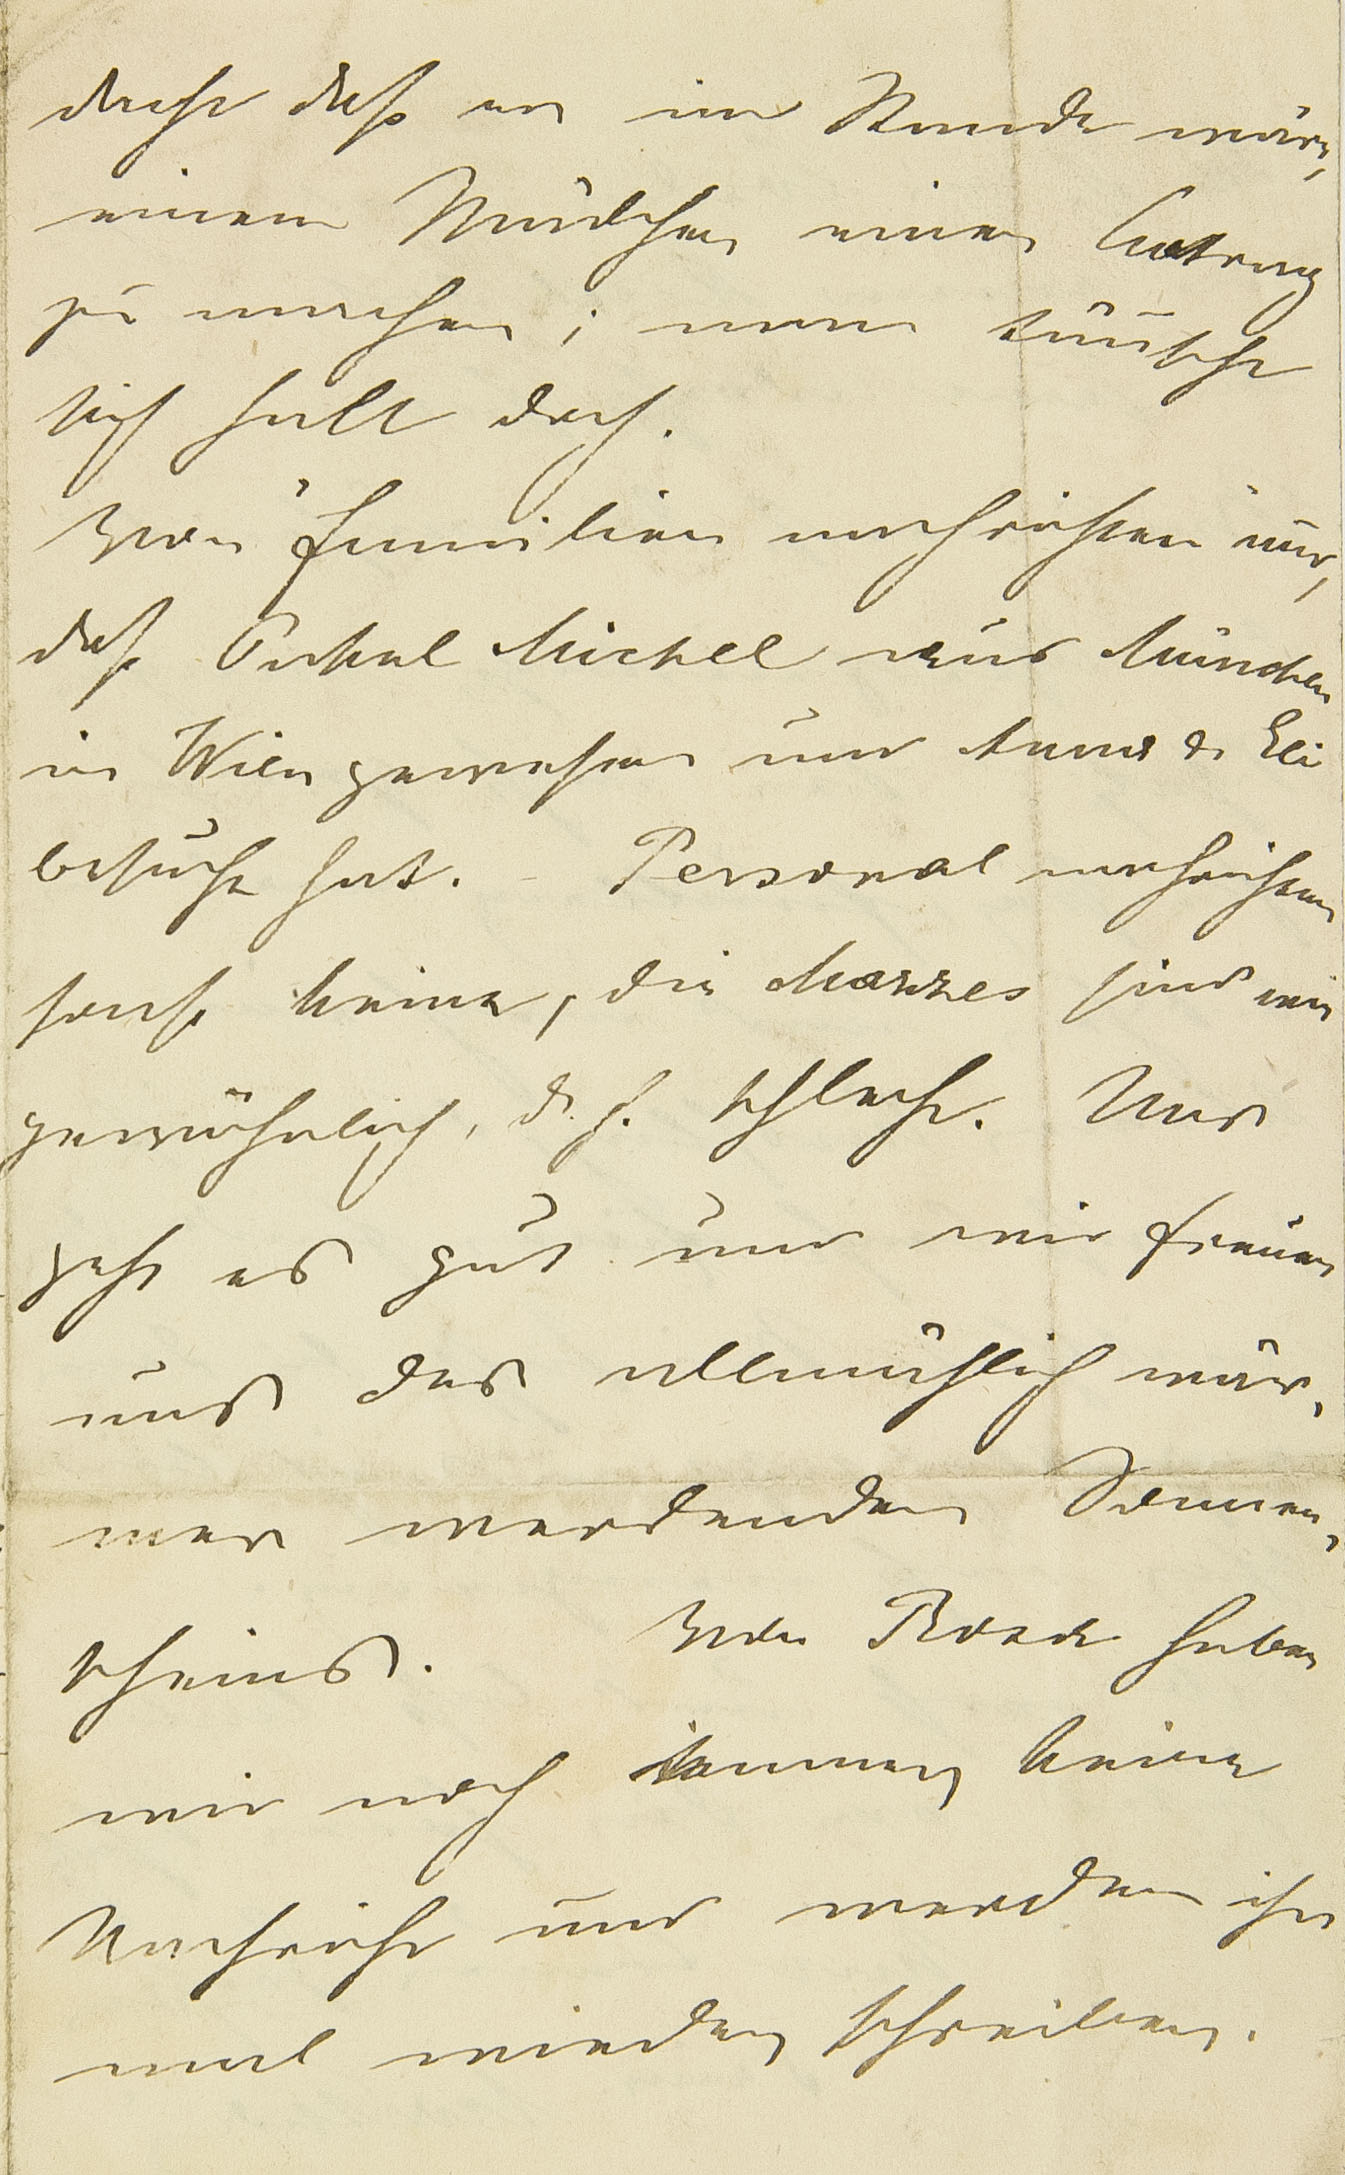 dacht daß er im Stande wäre,
einem Mädchen einen Antrag
zu machen; man täuscht
sich halt doch.
Von Familiennachrichten nur,
daß Onkel Michel aus München
in Wien gewesen und Anna & Eli
besucht hat. – Personalnachrichten
sonst keine, die sind wie
gewöhnlich, d. h. schlecht. Uns
geht es gut und wir freuen
uns des allmählich wär-
mer werdenden Sonnen-
scheins. Von haben
wir noch immer keine
Nachricht und werden ihr
mal wieder schreiben.